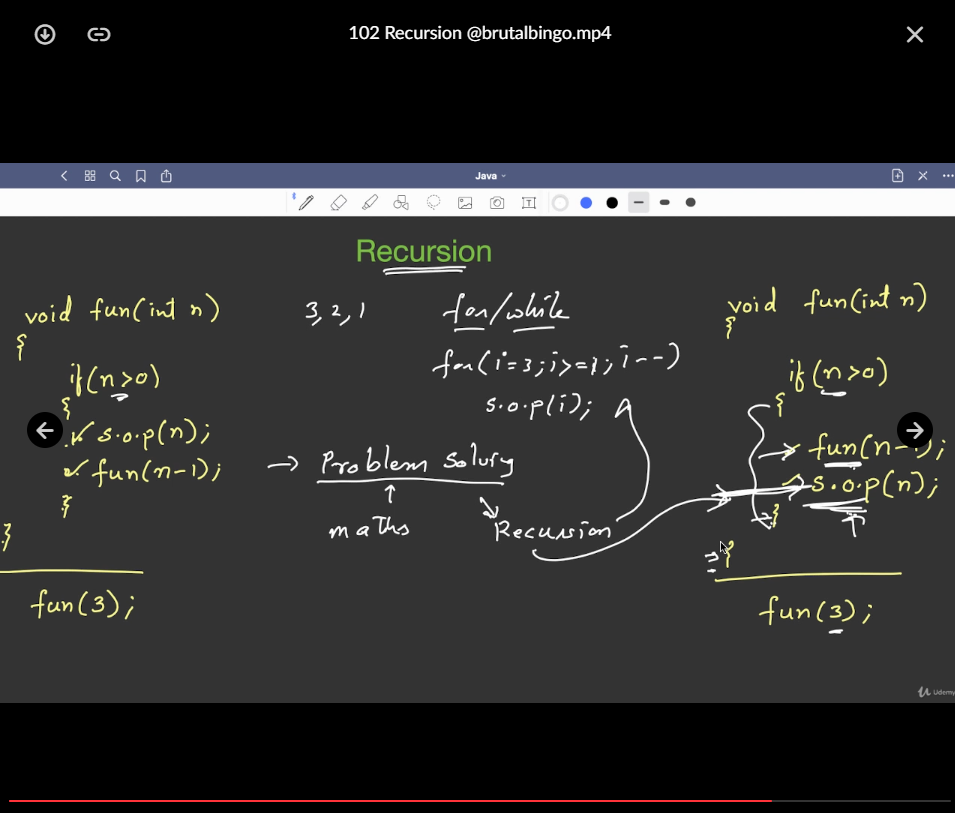 102 Recursion @brutalbingo.mp4
Java
Recursion
void fun(int n)
{
if(n>0)
{
s.o.p(n);
fun(n-1);
}
}
fun(3);
3,2,1
for/while
for(i=3;i>=1;i--)
s.o.p(i);
→ Problem Solving
maths
Recursion
void fun(int n)
{
if(n>0)
{
fun(n-1);
s.o.p(n);
}
}
fun(3);
Udemy